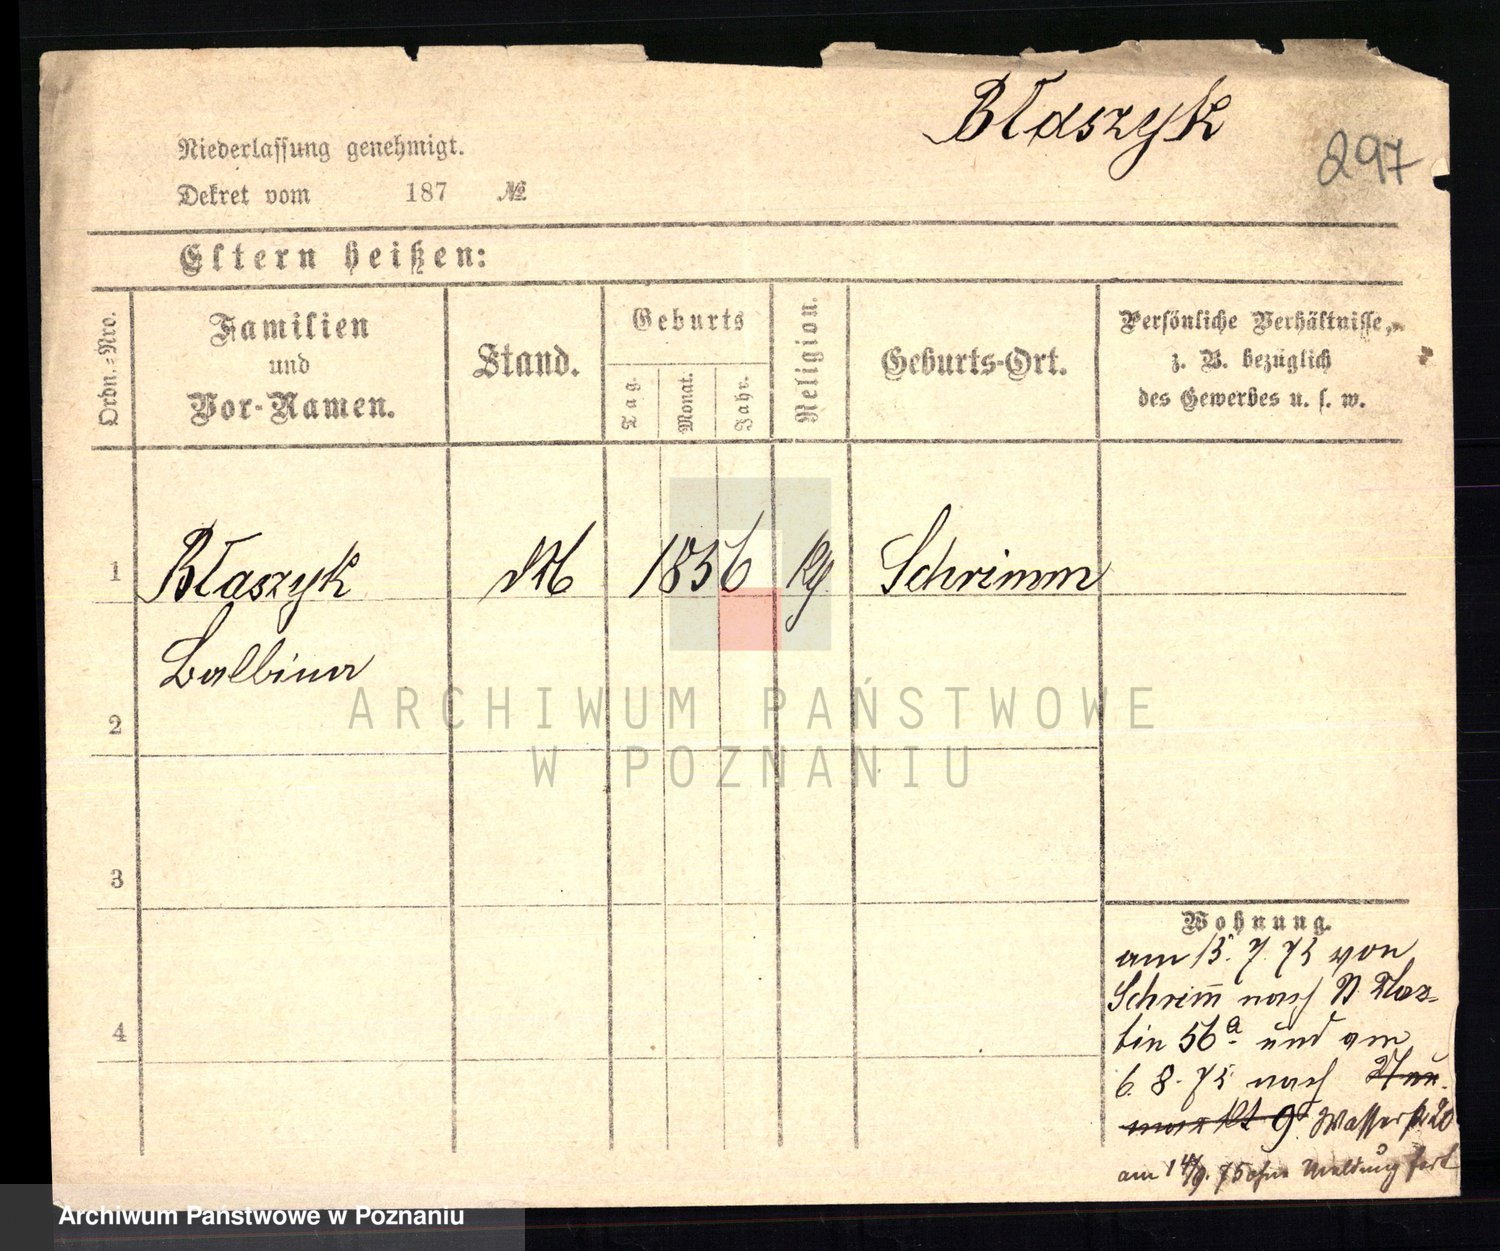 Błaszyk
297
Niederlassung genehmigt.
Dekret vom 187 №
Eltern heißen:
Ordn.-Nro.
Familien
und
Vor-Namen.
Stand.
Geburts
Tag.
Monat.
Jahr.
Religion.
Geburts-Ort.
Persönliche Verhältnisse,
z. B. bezüglich
des Gewerbes u. s. w.
1
Błaszyk
1856
Schrimm
Balbina
2
ARCHIWUM PAŃSTWOWE
W POZNANIU
3
4
Wohnung.
am 15. 7. 75 von
Schrim̄ nach St Mar-
tin 56a und am
6. 8. 75 nach Neu-
markt 9. Wasserstr 20
am 14/9. 75 ohne Meldung fort
Archiwum Państwowe w Poznaniu